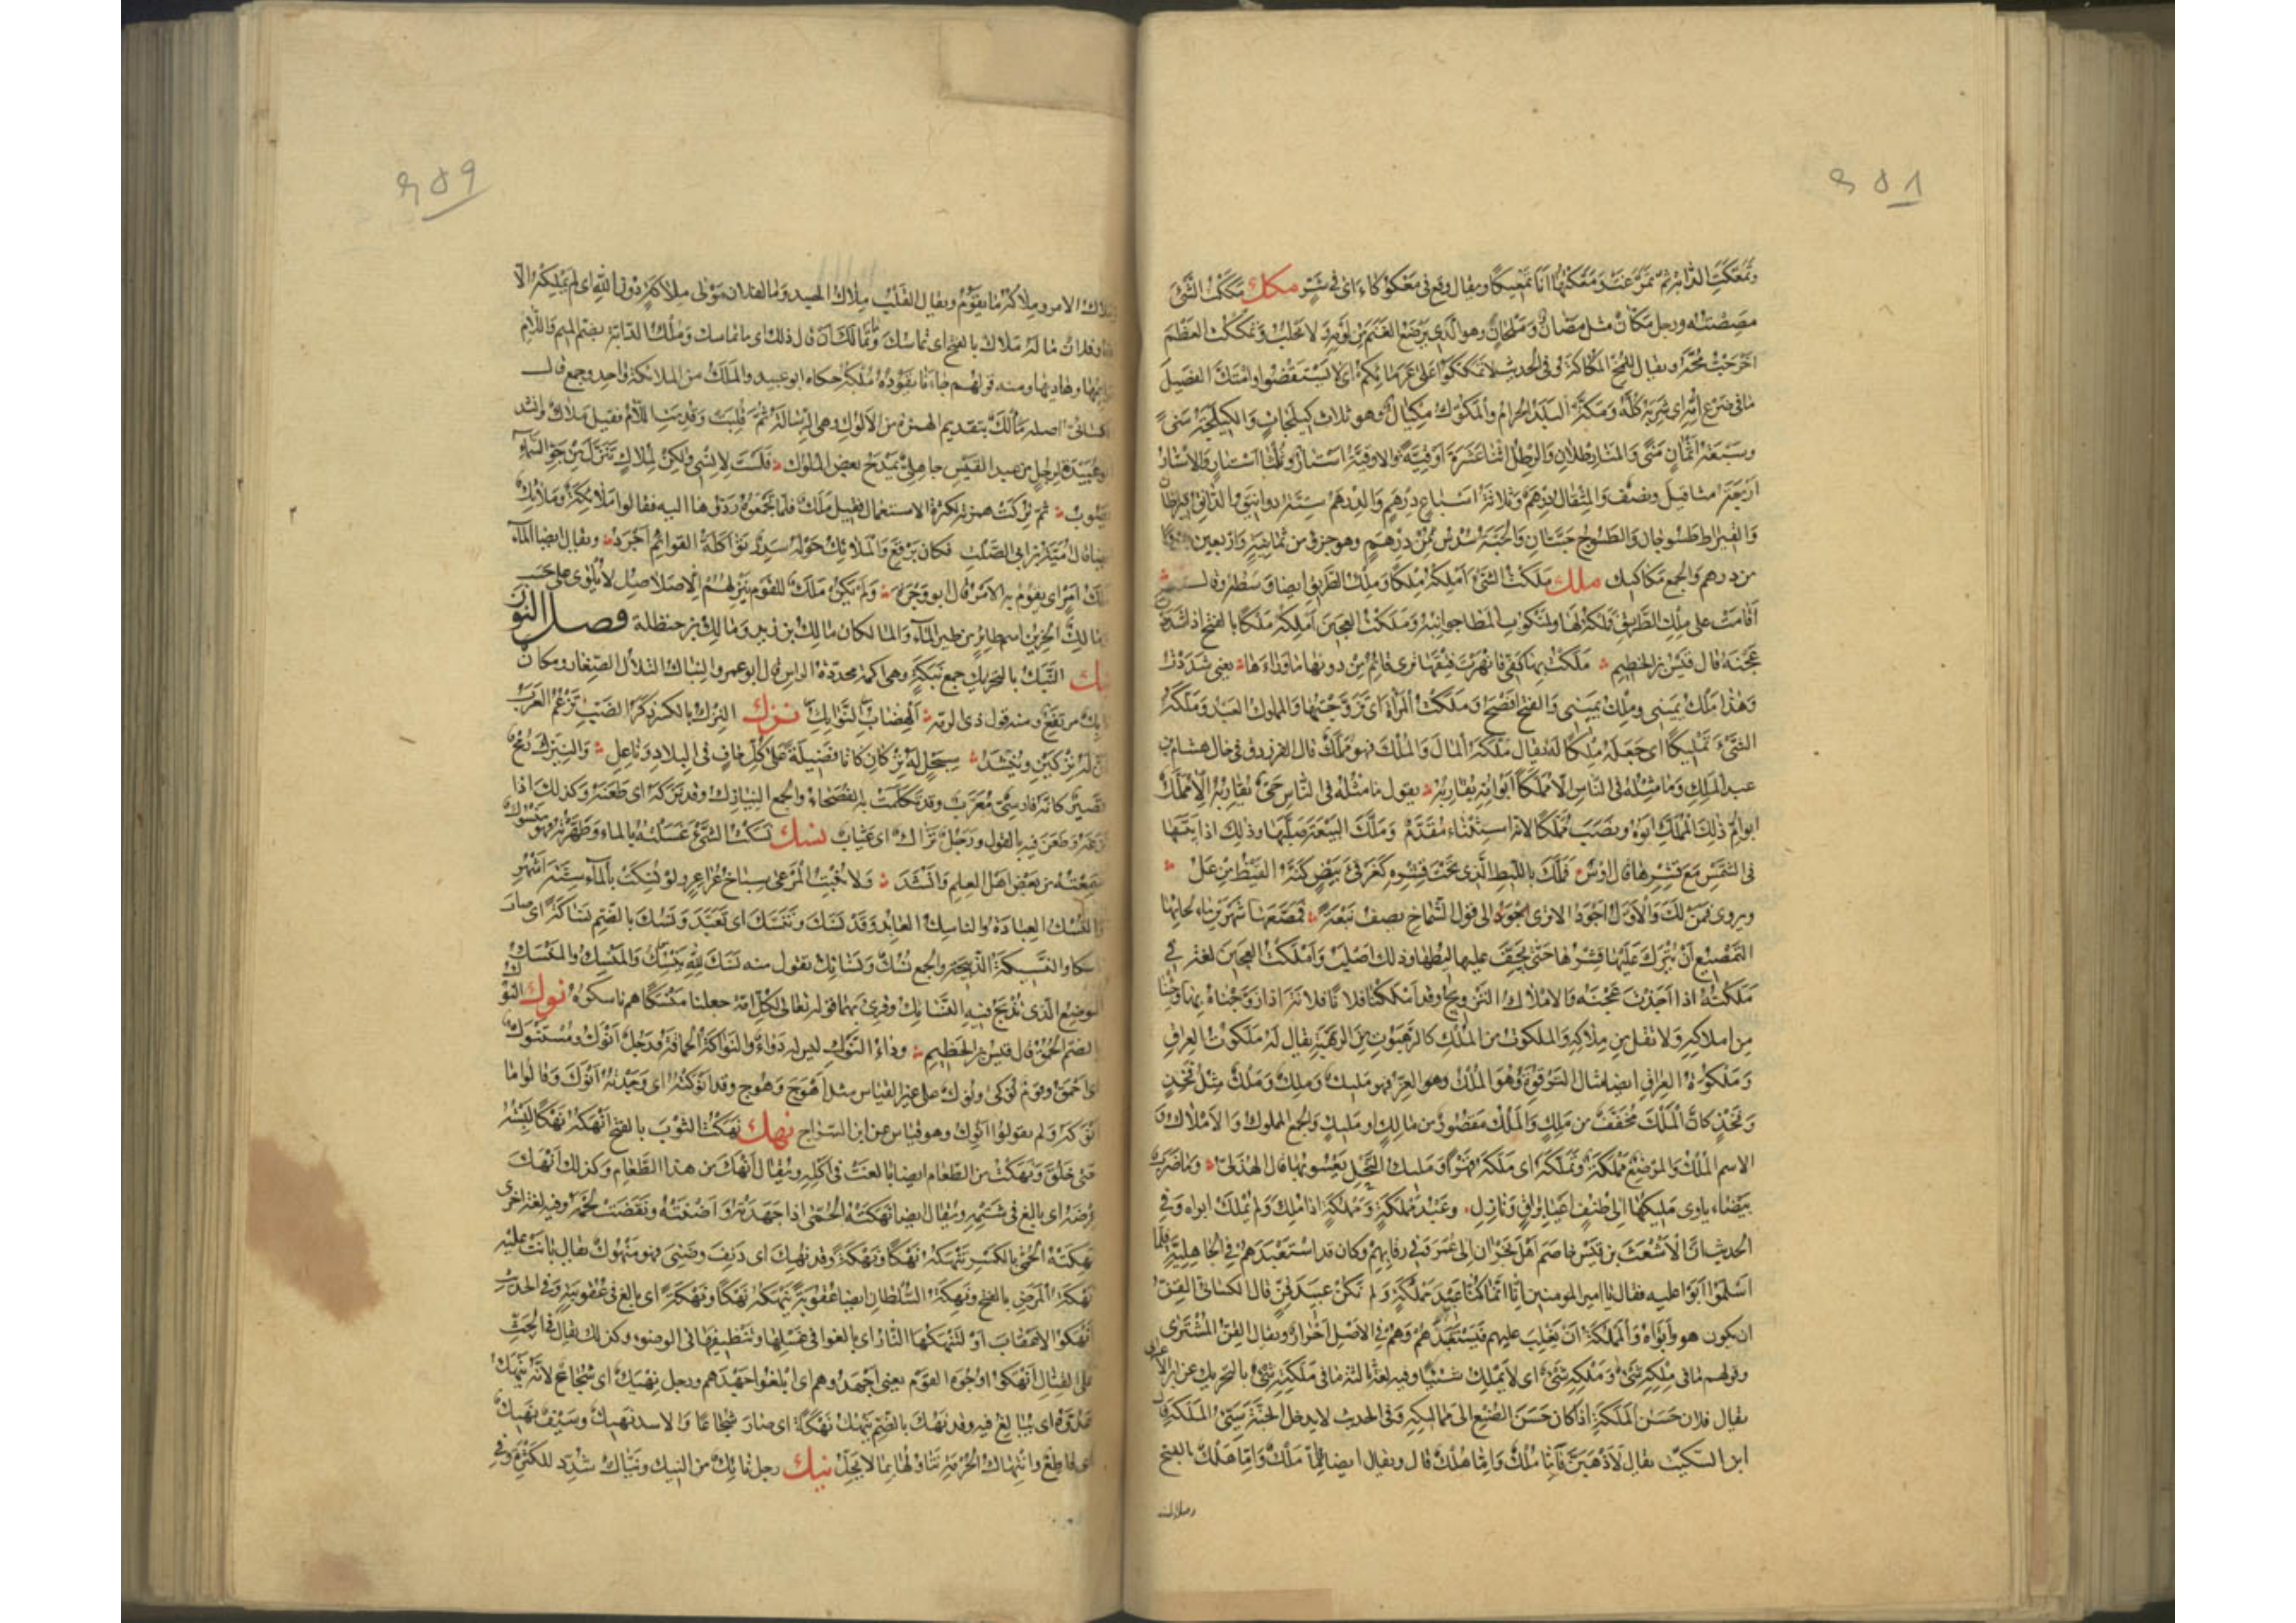 ٤٥٨
وتمعكت الدابة تمرغت ومعكتها انا تمعيكا ويقال وقع فى معكوكاء اى فى شر مكك مككت الشئ
مصصته ورجل مكان مثل مصان وملجان وهو الذى يرضع الغنم من لومه ولا يحلب وتمككت العظم
اخرجت مخه ويقال للمخ المكاكة وفى الحديث لا تمككوا على غرمائكم اى لا تستقضوا وامتك الفصيل
ما فى ضرع امه اى شربه كله ومكة البلد الحرام والمكوك مكيال وهو ثلاث كيلجات والكيلجة منى
وسبعة اثمان منى والمنا رطلان والرطل اثنتا عشرة اوقية والاوقية استار وثلثا استار والاستار
اربعة مثاقيل ونصف والمثقال درهم وثلاثة اسباع درهم والدرهم ستة دوانيق والدانق قيراطان
والقيراط طسوجان والطسوج حبتان والحبة سدس ثمن درهم وهو جزو من ثمانية واربعين جزوا
من درهم والجمع مكاكيك ملك ملكت الشئ املكه ملكا وملك الطريق ايضا وسطه وقال
اقامت على ملك الطريق فملكه لها ولمنكوب المطايا جوانبه وملكت العجين املكه ملكا بالفتح اذا شددت
عجنه قال قيس بن الخطيم ملكت بها كفى فانهرت فتقها يرى قائم من دونها ما وراءها يعنى شددت
وهذا ملك يمينى وملك يمينى والفتح افصح وملكت المراة اى تزوجتها والمملوك العبد وملكه
الشئ تمليكا اى جعله ملكا له يقال ملكه المال والملك فهو مملك قال الفرزدق فى خال هشام بن
عبد الملك وما مثله فى الناس الا مملكا ابو امه حى ابوه يقاربه يقول ما مثله فى الناس حى يقاربه الا مملك
ابو ام ذلك المملك ابوه ونصب مملكا لانه استثناء مقدم وملك النبعة صلبها وذلك اذا يبسها
فى الشمس مع قشرها قال اوس فملك بالليط الذى تحت قشره كغرقئ بيض كنه القيض من عل
ويروى فمن لك والاول اجود الا ترى الى قول الشماخ يصف نبعة فمصعها شهرين ماء لحائها
التمصيع ان يترك عليها قشرها حتى يجف عليها ليطها وذلك اصلب واملكت العجين لغة فى
ملكته اذا اجدت عجنه والاملاك التزويج وقد املكنا فلانا فلانة اذا زوجناه اياها وجئنا
من املاكه ولا تقل من ملاكه والملكوت من الملك كالرهبوت من الرهبة يقال له ملكوت العراق
وملكوة العراق ايضا مثال الترقوة وهو الملك وهو العز فهو مليك وملك وملك مثل فخذ
وفخذ كان الملك مخفف من ملك والملك مقصور من مالك او مليك والجمع الملوك والاملاك و
الاسم الملك والموضع مملكة وتملكه اى ملكه قهرا ومليك النحل يعسوبها قال الهذلى وما ضرب
بيضاء ياوى مليكها الى طنف اعيا براق ونازل وعبد مملكة ومملكة اذا ملك ولم يملك ابواه وفى
الحديث ان الاشعث بن قيس خاصم اهل نجران الى عمر فى رقابهم وكان قد استعبدهم فى الجاهلية فلما
اسلموا ابوا عليه فقال يا امير المومنين انا انما كنا عبيد مملكة ولم نكن عبيد قن قال الكسائى القن
ان يكون هو وابواه والمملكة ان يغلب عليهم فيستعبدهم وهم فى الاصل احرار ويقال القن المشترى
وقولهم ما فى ملكه شئ وملكه شئ اى لا يملك شيئا وفيه لغة ثالثة ما فى ملكته شئ بالتحريك عن ابن الاعرابى
يقال فلان حسن الملكة اذا كان حسن الصنيع الى مماليكه وفى الحديث لا يدخل الجنة سيئ الملكة قال
ابن السكيت يقال لاذهبن فاما ملك واما هلك قال ويقال ايضا فاما ملك واما هلك بالفتح
٤٥٩
وملاك الامر وملاكه ما يقوم به ويقال القلب ملاك الجسد وما لفلان مولى ملاكة دون الله اى لم يملكه الا
الله وفلان ما له ملاك بالفتح اى تماسك وما تمالك ان قال ذلك اى ما تماسك وملك الدابة بضم الميم واللام
قوائمها وهاديها ومنه قولهم جاءنا تقوده ملكه حكاه ابو عبيد والملك من الملائكة واحد وجمع قال
الكسائى اصله مألك بتقديم الهمزة من الالوك وهى الرسالة ثم قلبت وقدمت اللام فقيل ملاك وانشد
ابو عبيدة لرجل من عبد القيس جاهلى يمدح بعض الملوك فلست لانسى ولكن لملاك تنزل من جو السماء
يصوب ثم تركت همزته لكثرة الاستعمال فقيل ملك فلما جمعوه ردوها اليه فقالوا ملائكة وملائك
ايضا قال امية بن ابى الصلت فكان برقع والملائك حوله سدر تواكله القوائم اجرد ويقال ايضا الماء
ملك امر اى يقوم به الامر قال ابو وجزة ولم يكن ملك للقوم ينزلهم الا صلاصل لا تلوى على حسب
ومالك الحزين اسم طائر من طير الماء والمالكان مالك بن زيد ومالك بن حنظلة فصل النون
نبك النبك بالتحريك جمع نبكة وهى اكمة محددة الراس قال ابو عمرو النباك التلال الصغار ومكان
نابك مرتفع ومنه قول ذى الرمة الهضاب النوابك نزك النزك بالكسر ذكر الضب تزعم العرب
ان له نزكين وينشد سبحل له نزكان كانا فضيلة على كل حاف فى البلاد وناعل والنيزك رمح
قصير كانه فارسى معرب وقد تكلمت به الفصحاء والجمع النيازك وقد نزكه اى طعنه وكذلك اذا
نزغه وطعن فيه بالقول ورجل نزاك اى عياب نسك نسكت الشئ غسلته بالماء وطهرته فهو منسوك
سمعته من بعض اهل العلم وانشد ولا تنبت المرعى سباخ عراعر ولو نسكت بالماء ستة اشهر
والنسك العبادة والناسك العابد وقد نسك وتنسك اى تعبد ونسك بالضم نساكة اى صار
ناسكا والنسيكة الذبيحة والجمع نسك ونسائك تقول منه نسك لله ينسك والمنسك والمنسك
الموضع الذى تذبح فيه النسائك وقرئ بهما قوله تعالى لكل امة جعلنا منسكا هم ناسكوه نوك النوك
بالضم الحمق قال قيس بن الخطيم وداء النوك ليس له دواء والنواكة الحماقة ورجل انوك ومستنوك
اى احمق وقوم نوكى ونوك على غير القياس مثل اهوج وهوج وقد انوكته اى وجدته انوك وقالوا ما
انوكه ولم يقولوا انوك به وهو قياس عن ابن السراج نهك نهكت الثوب بالفتح انهكه نهكا لبسته
حتى خلق ونهكت من الطعام ايضا بالغت فى اكله ويقال انهك من هذا الطعام وكذلك انهك
عرضه اى بالغ فى شتمه ويقال ايضا نهكته الحمى اذا جهدته واضنته ونقصت لحمه وفيه لغة اخرى
نهكته الحمى بالكسر تنهكه نهكا ونهكة وقد نهك اى دنف وضنى فهو منهوك يقال بانت عليه
نهكة المرض بالفتح ونهكه السلطان ايضا عقوبة ينهكه نهكا ونهكة اى بالغ فى عقوبته وفى الحديث
انهكوا الاعقاب او لتنهكنها النار اى بالغوا فى غسلها وتنظيفها فى الوضوء وكذلك يقال فى الحث
على القتال انهكوا وجوه القوم يعنى اجهدوهم اى ابلغوا جهدهم ورجل نهيك اى شجاع لانه ينهك
عدوه اى يبالغ فيه وقد نهك بالضم ينهك نهاكة اى صار شجاعا والاسد نهيك وسيف نهيك
اى قاطع وانتهاك الحرمة تناولها بما لا يحل نيك رجل نائك من النيك ونياك شدد للكثرة وفى